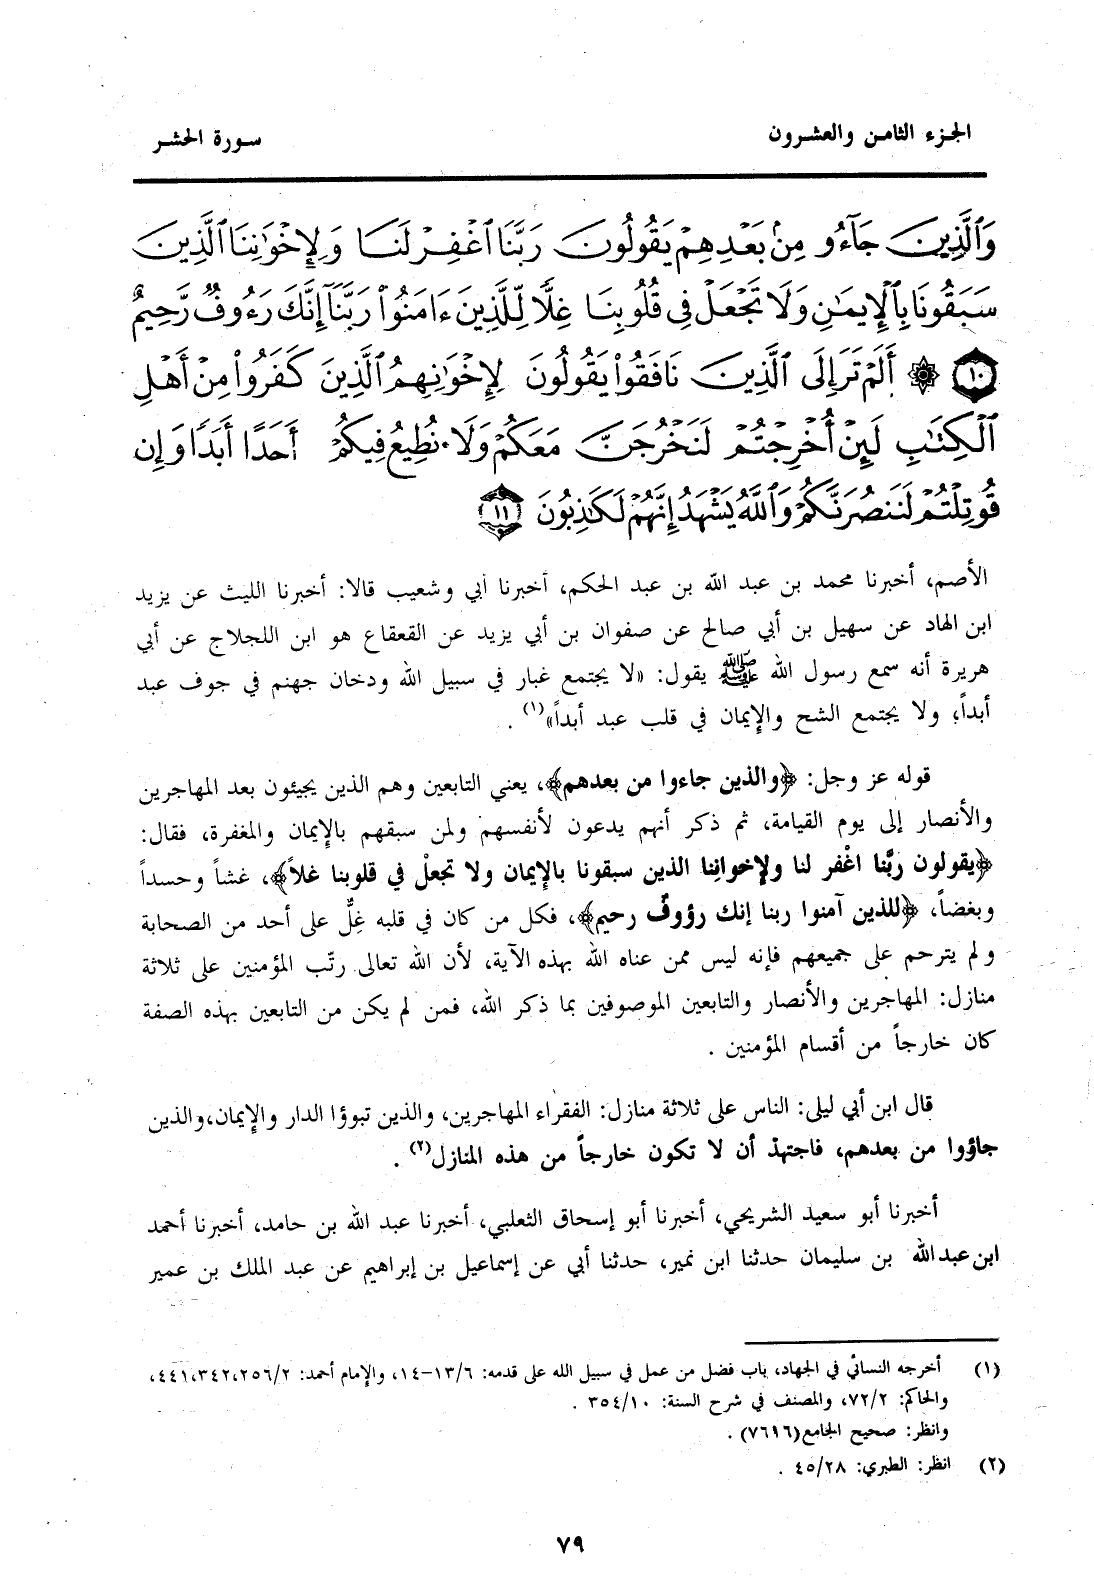 الجزء الثامن والعشرون
سورة الحشر
وَٱلَّذِينَ جَآءُو مِنۢ بَعْدِهِمْ يَقُولُونَ رَبَّنَا ٱغْفِرْ لَنَا وَلِإِخْوَٰنِنَا ٱلَّذِينَ
سَبَقُونَا بِٱلْإِيمَٰنِ وَلَا تَجْعَلْ فِى قُلُوبِنَا غِلًّا لِّلَّذِينَ ءَامَنُوا۟ رَبَّنَآ إِنَّكَ رَءُوفٌ رَّحِيمٌ
١٠ ۞ أَلَمْ تَرَ إِلَى ٱلَّذِينَ نَافَقُوا۟ يَقُولُونَ لِإِخْوَٰنِهِمُ ٱلَّذِينَ كَفَرُوا۟ مِنْ أَهْلِ
ٱلْكِتَٰبِ لَئِنْ أُخْرِجْتُمْ لَنَخْرُجَنَّ مَعَكُمْ وَلَا نُطِيعُ فِيكُمْ أَحَدًا أَبَدًا وَإِن
قُوتِلْتُمْ لَنَنصُرَنَّكُمْ وَٱللَّهُ يَشْهَدُ إِنَّهُمْ لَكَٰذِبُونَ ١١
الأصم، أخبرنا محمد بن عبد الله بن عبد الحكم، أخبرنا أبي وشعيب قالا: أخبرنا الليث عن يزيد
ابن الهاد عن سهيل بن أبي صالح عن صفوان بن أبي يزيد عن القعقاع هو ابن اللجلاج عن أبي
هريرة أنه سمع رسول الله ﷺ يقول: «لا يجتمع غبار في سبيل الله ودخان جهنم في جوف عبد
أبداً، ولا يجتمع الشح والإيمان في قلب عبد أبداً»(١) .
قوله عز وجل: ﴿والذين جاءوا من بعدهم﴾، يعني التابعين وهم الذين يجيئون بعد المهاجرين
والأنصار إلى يوم القيامة، ثم ذكر أنهم يدعون لأنفسهم ولمن سبقهم بالإيمان والمغفرة، فقال:
﴿يقولون ربَّنا اغْفر لنا ولإخواننا الذين سبقونا بالإيمان ولا تجعلْ في قلوبنا غلاً﴾، غشاً وحسداً
وبغضاً، ﴿للذين آمنوا ربنا إنك رؤوفٌ رحيم﴾، فكل من كان في قلبه غِلٌّ على أحد من الصحابة
ولم يترحم على جميعهم فإنه ليس ممن عناه الله بهذه الآية، لأن الله تعالى رتّب المؤمنين على ثلاثة
منازل: المهاجرين والأنصار والتابعين الموصوفين بما ذكر الله، فمن لم يكن من التابعين بهذه الصفة
كان خارجاً من أقسام المؤمنين .
قال ابن أبي ليلى: الناس على ثلاثة منازل: الفقراء المهاجرين، والذين تبوؤا الدار والإيمان،والذين
جاؤوا من بعدهم، فاجتهدْ أن لا تكون خارجاً من هذه المنازل(٢) .
أخبرنا أبو سعيد الشريحي، أخبرنا أبو إسحاق الثعلبي، أخبرنا عبد الله بن حامد، أخبرنا أحمد
ابن عبد الله بن سليمان حدثنا ابن نمير، حدثنا أبي عن إسماعيل بن إبراهيم عن عبد الملك بن عمير
(١) أخرجه النسائي في الجهاد، باب فضل من عمل في سبيل الله على قدمه: ٦/١٣-١٤، والإمام أحمد: ٢/٢٥٦،٣٤٢،٤٤١،
والحاكم: ٧٢/٢، والمصنف في شرح السنة: ٣٥٤/١٠ .
وانظر: صحيح الجامع(٧٦٩٦) .
(٢) انظر: الطبري: ٤٥/٢٨ .
٧٩